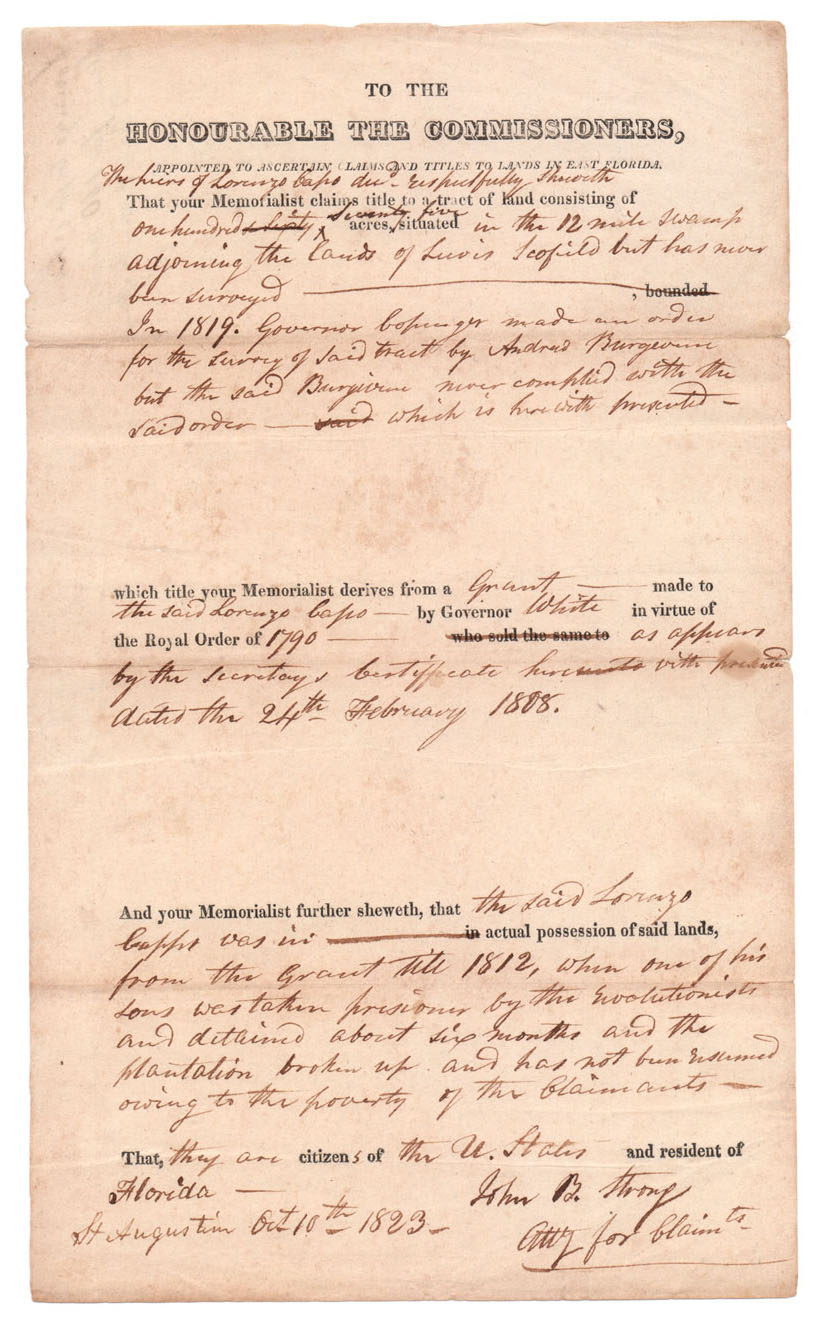 TO THE
HONOURABLE THE COMMISSIONERS,
APPOINTED TO ASCERTAIN CLAIMS AND TITLES TO LANDS IN EAST FLORIDA.
The heirs of Lorenzo Capo decd. respectfully sheweth
That your Memorialist claims title to a tract of land consisting of
one hundred & sixty, seventy five acres, situated in the 12 mile swamp
adjoining the lands of Lewis Scofield but has never
been surveyed , bounded
In 1819. Governor Copinger made an order
for the survey of said tract by Andred Burgevene
but the said Burgivene never complied with the
said order — said which is herewith presented —
which title your Memorialist derives from a Grant — made to
the said Lorenzo Capo — by Governor White in virtue of
the Royal Order of 1790 — who sold the same to as appears
by the secretays Certificate hereunto with presented
dated the 24th February 1808.
And your Memorialist further sheweth, that the said Lorenzo
Capps was in — in actual possession of said lands,
from the Grant till 1812, when one of his
sons was taken prisioner by the Revolutionists
and detained about six months and the
plantation broken up and has not been resumed
owing to the poverty of the Claimants —
That, they are citizens of the U. States and resident of
Florida —
John B. Strong
St Augustin Oct 10th 1823 —
Atty for Claimts